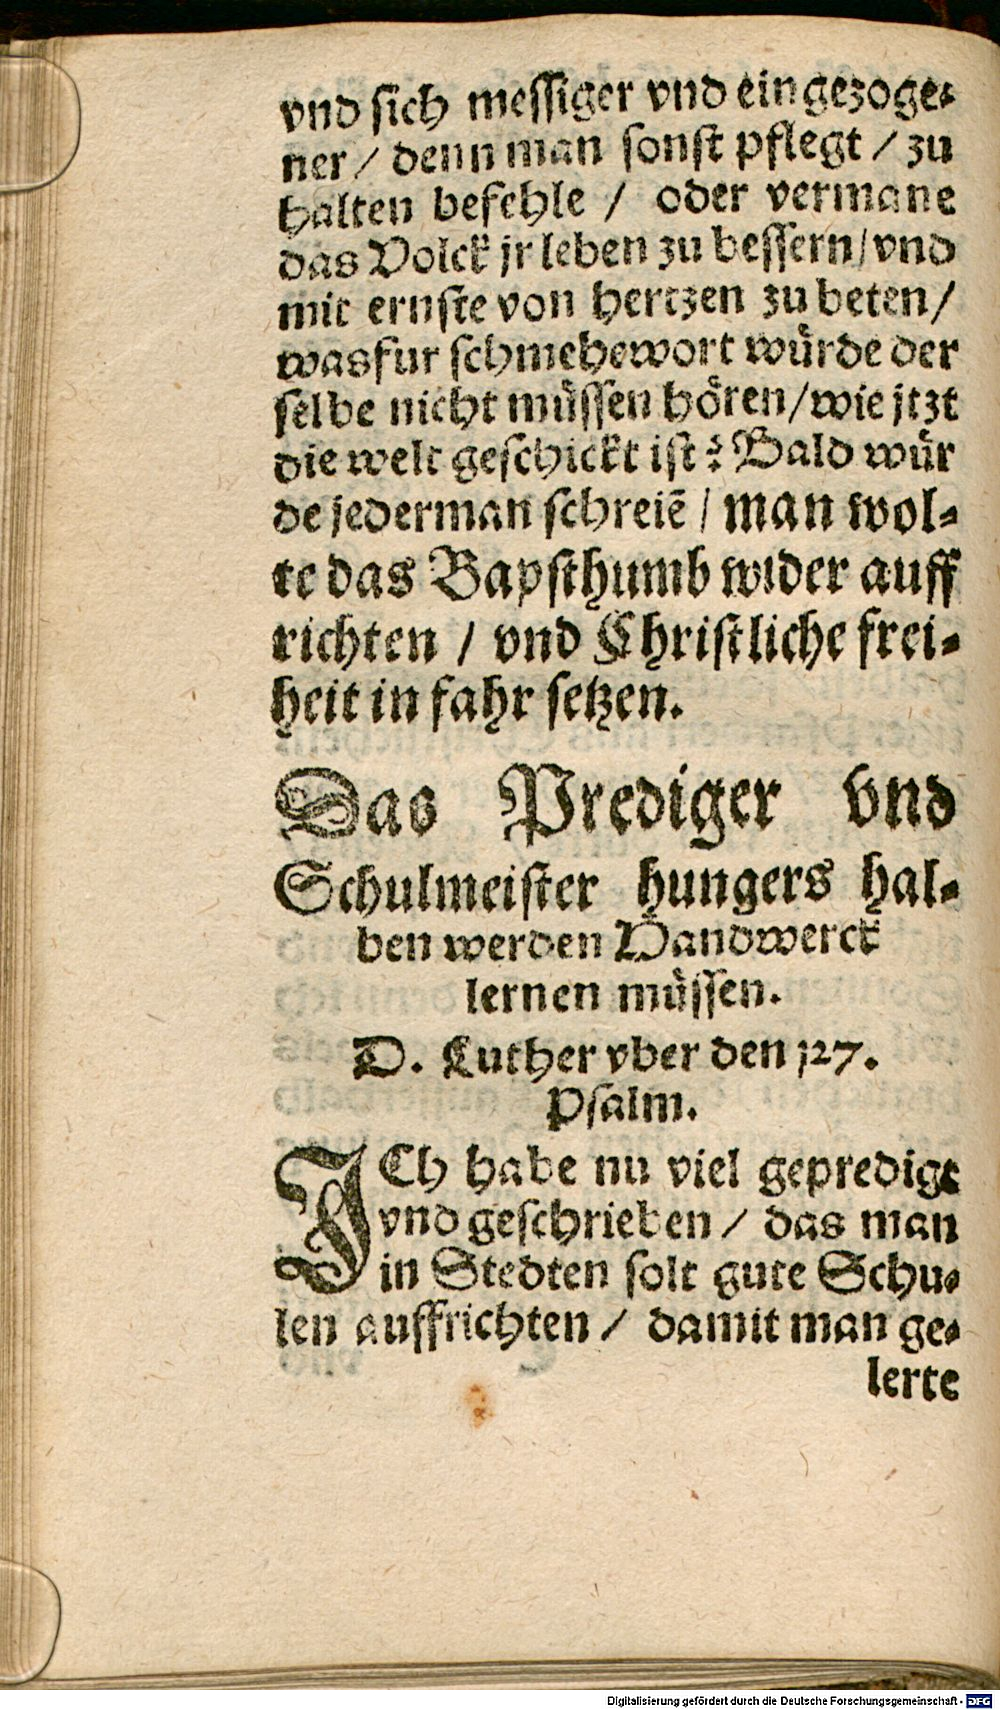 vnd sich messiger vnd eingezoge⸗
ner / denn man sonst pflegt / zu
halten befehle / oder vermane
das Volck jr leben zu bessern/ vnd
mit ernste von hertzen zu beten /
wasfur schmehewort würde der
selbe nicht müssen hören / wie jtzt
die welt geschickt ist? Bald wür
de jederman schreiē / man wol⸗
te das Bapsthumb wider auff
richten / vnd Christliche frei⸗
heit in fahr setzen.
Das Prediger vnd
Schulmeister hungers hal⸗
ben werden Handwerck
lernen müssen.
D. Luther vber den 127.
Psalm.
ICh habe nu viel gepredigt
vnd geschrieben / das man
in Stedten solt gute Schu⸗
len auffrichten / damit man ge⸗
lerte
Digitalisierung gefördert durch die Deutsche Forschungsgemeinschaft - DFG